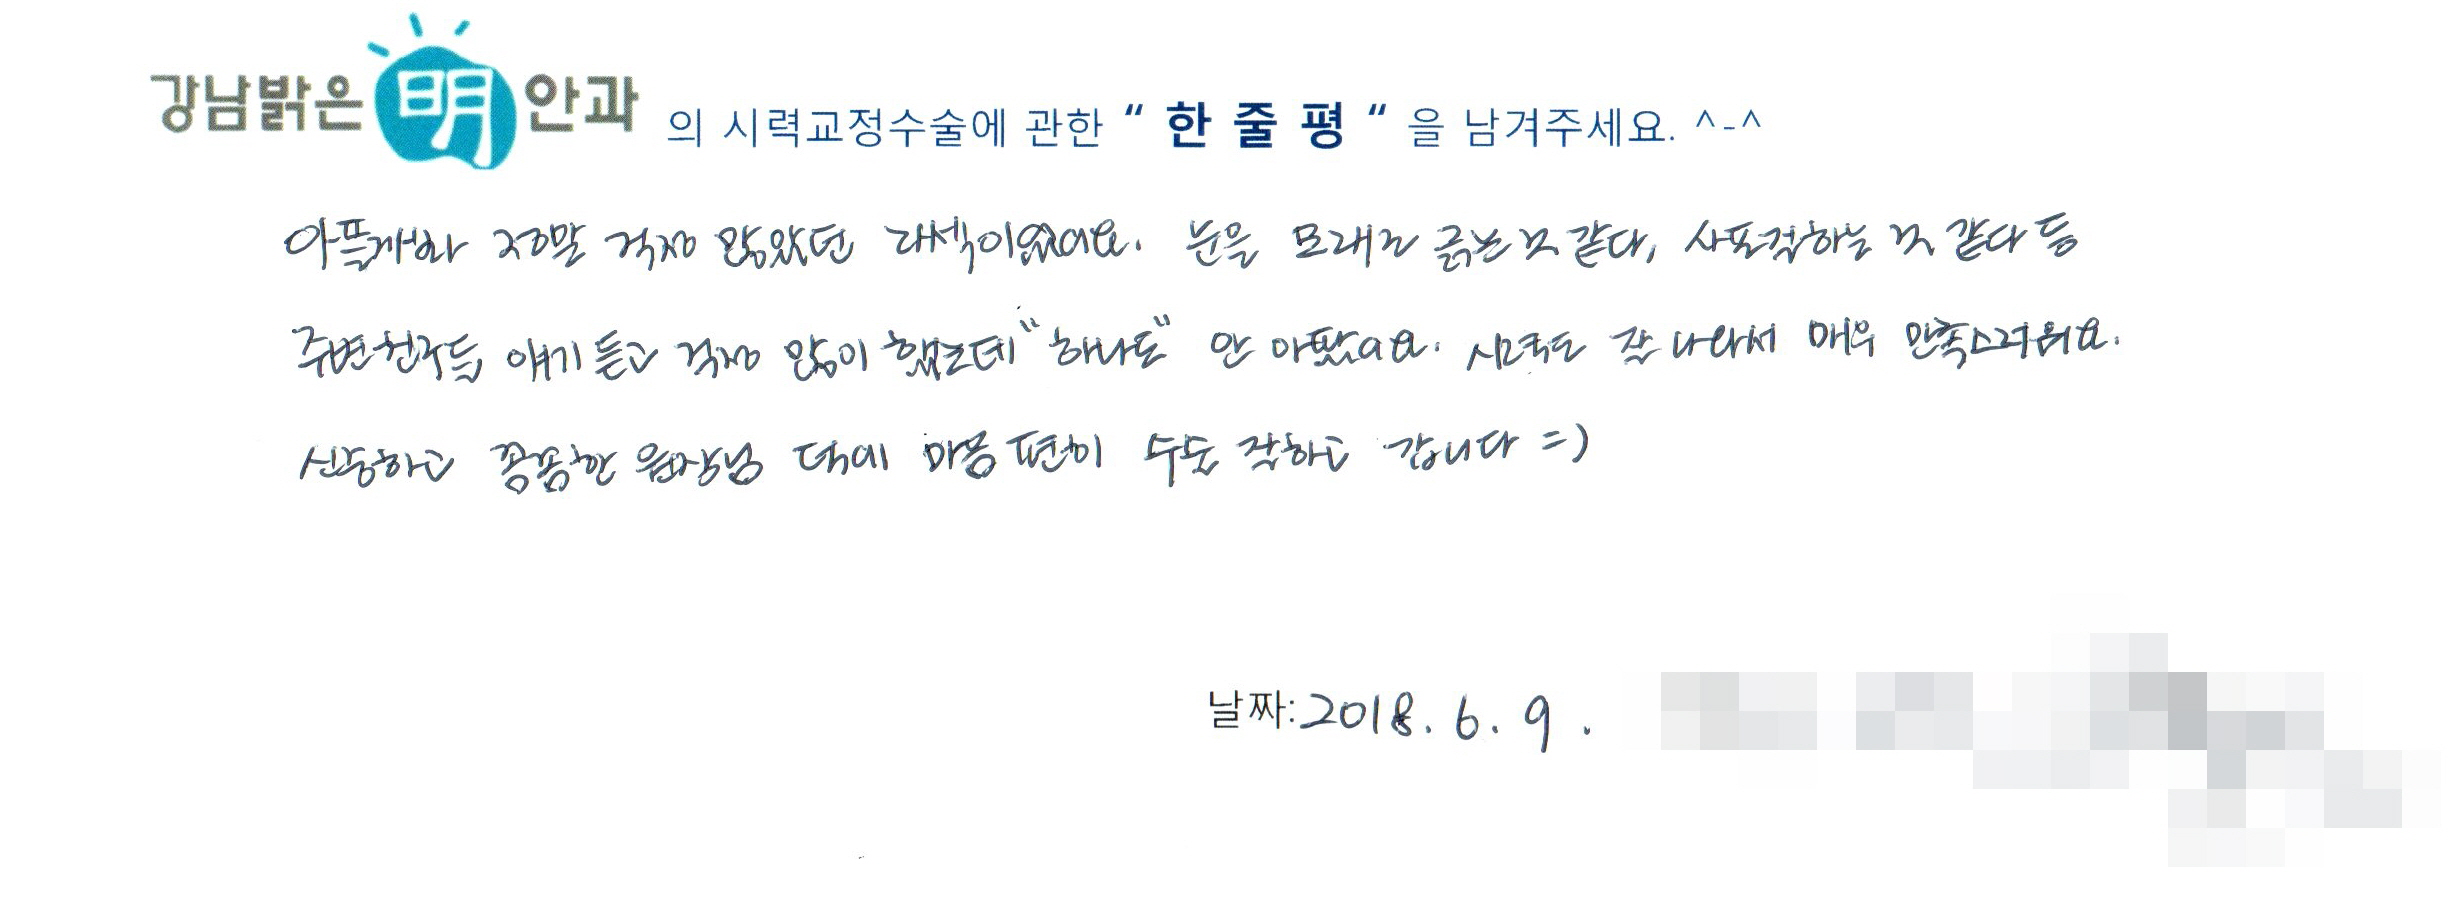 강남밝은 明 안과 의 시력교정수술에 관한 “ 한 줄 평 “ 을 남겨주세요. ^-^
아플까봐 정말 걱정 많았던 라섹이었어요. 눈을 모래로 긁는 것 같다, 사포질하는 것 같다 등
주변친구들 얘기 듣고 걱정 많이 했는데 "하나도" 안 아팠어요. 시력도 잘 나와서 매우 만족스러워요.
신중하고 꼼꼼한 원장님 덕에 마음 편히 수술 잘하고 갑니다 =)
날짜: 2018. 6. 9.